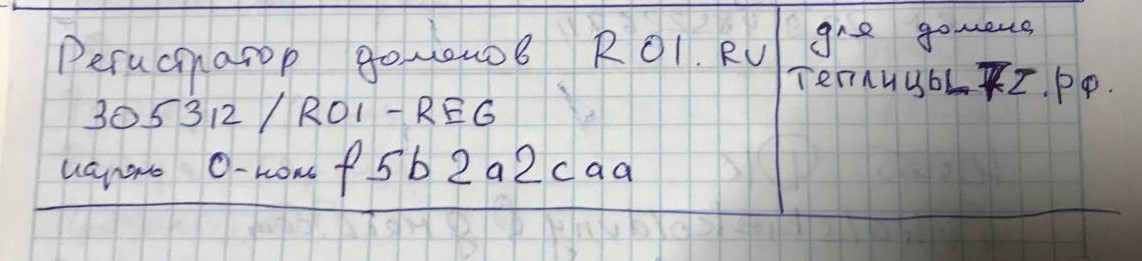 Регистратор доменов R01.RU
305312/R01-REG
пароль 0-ноль f5b2a2caa
для домена
теплицы
.рф.